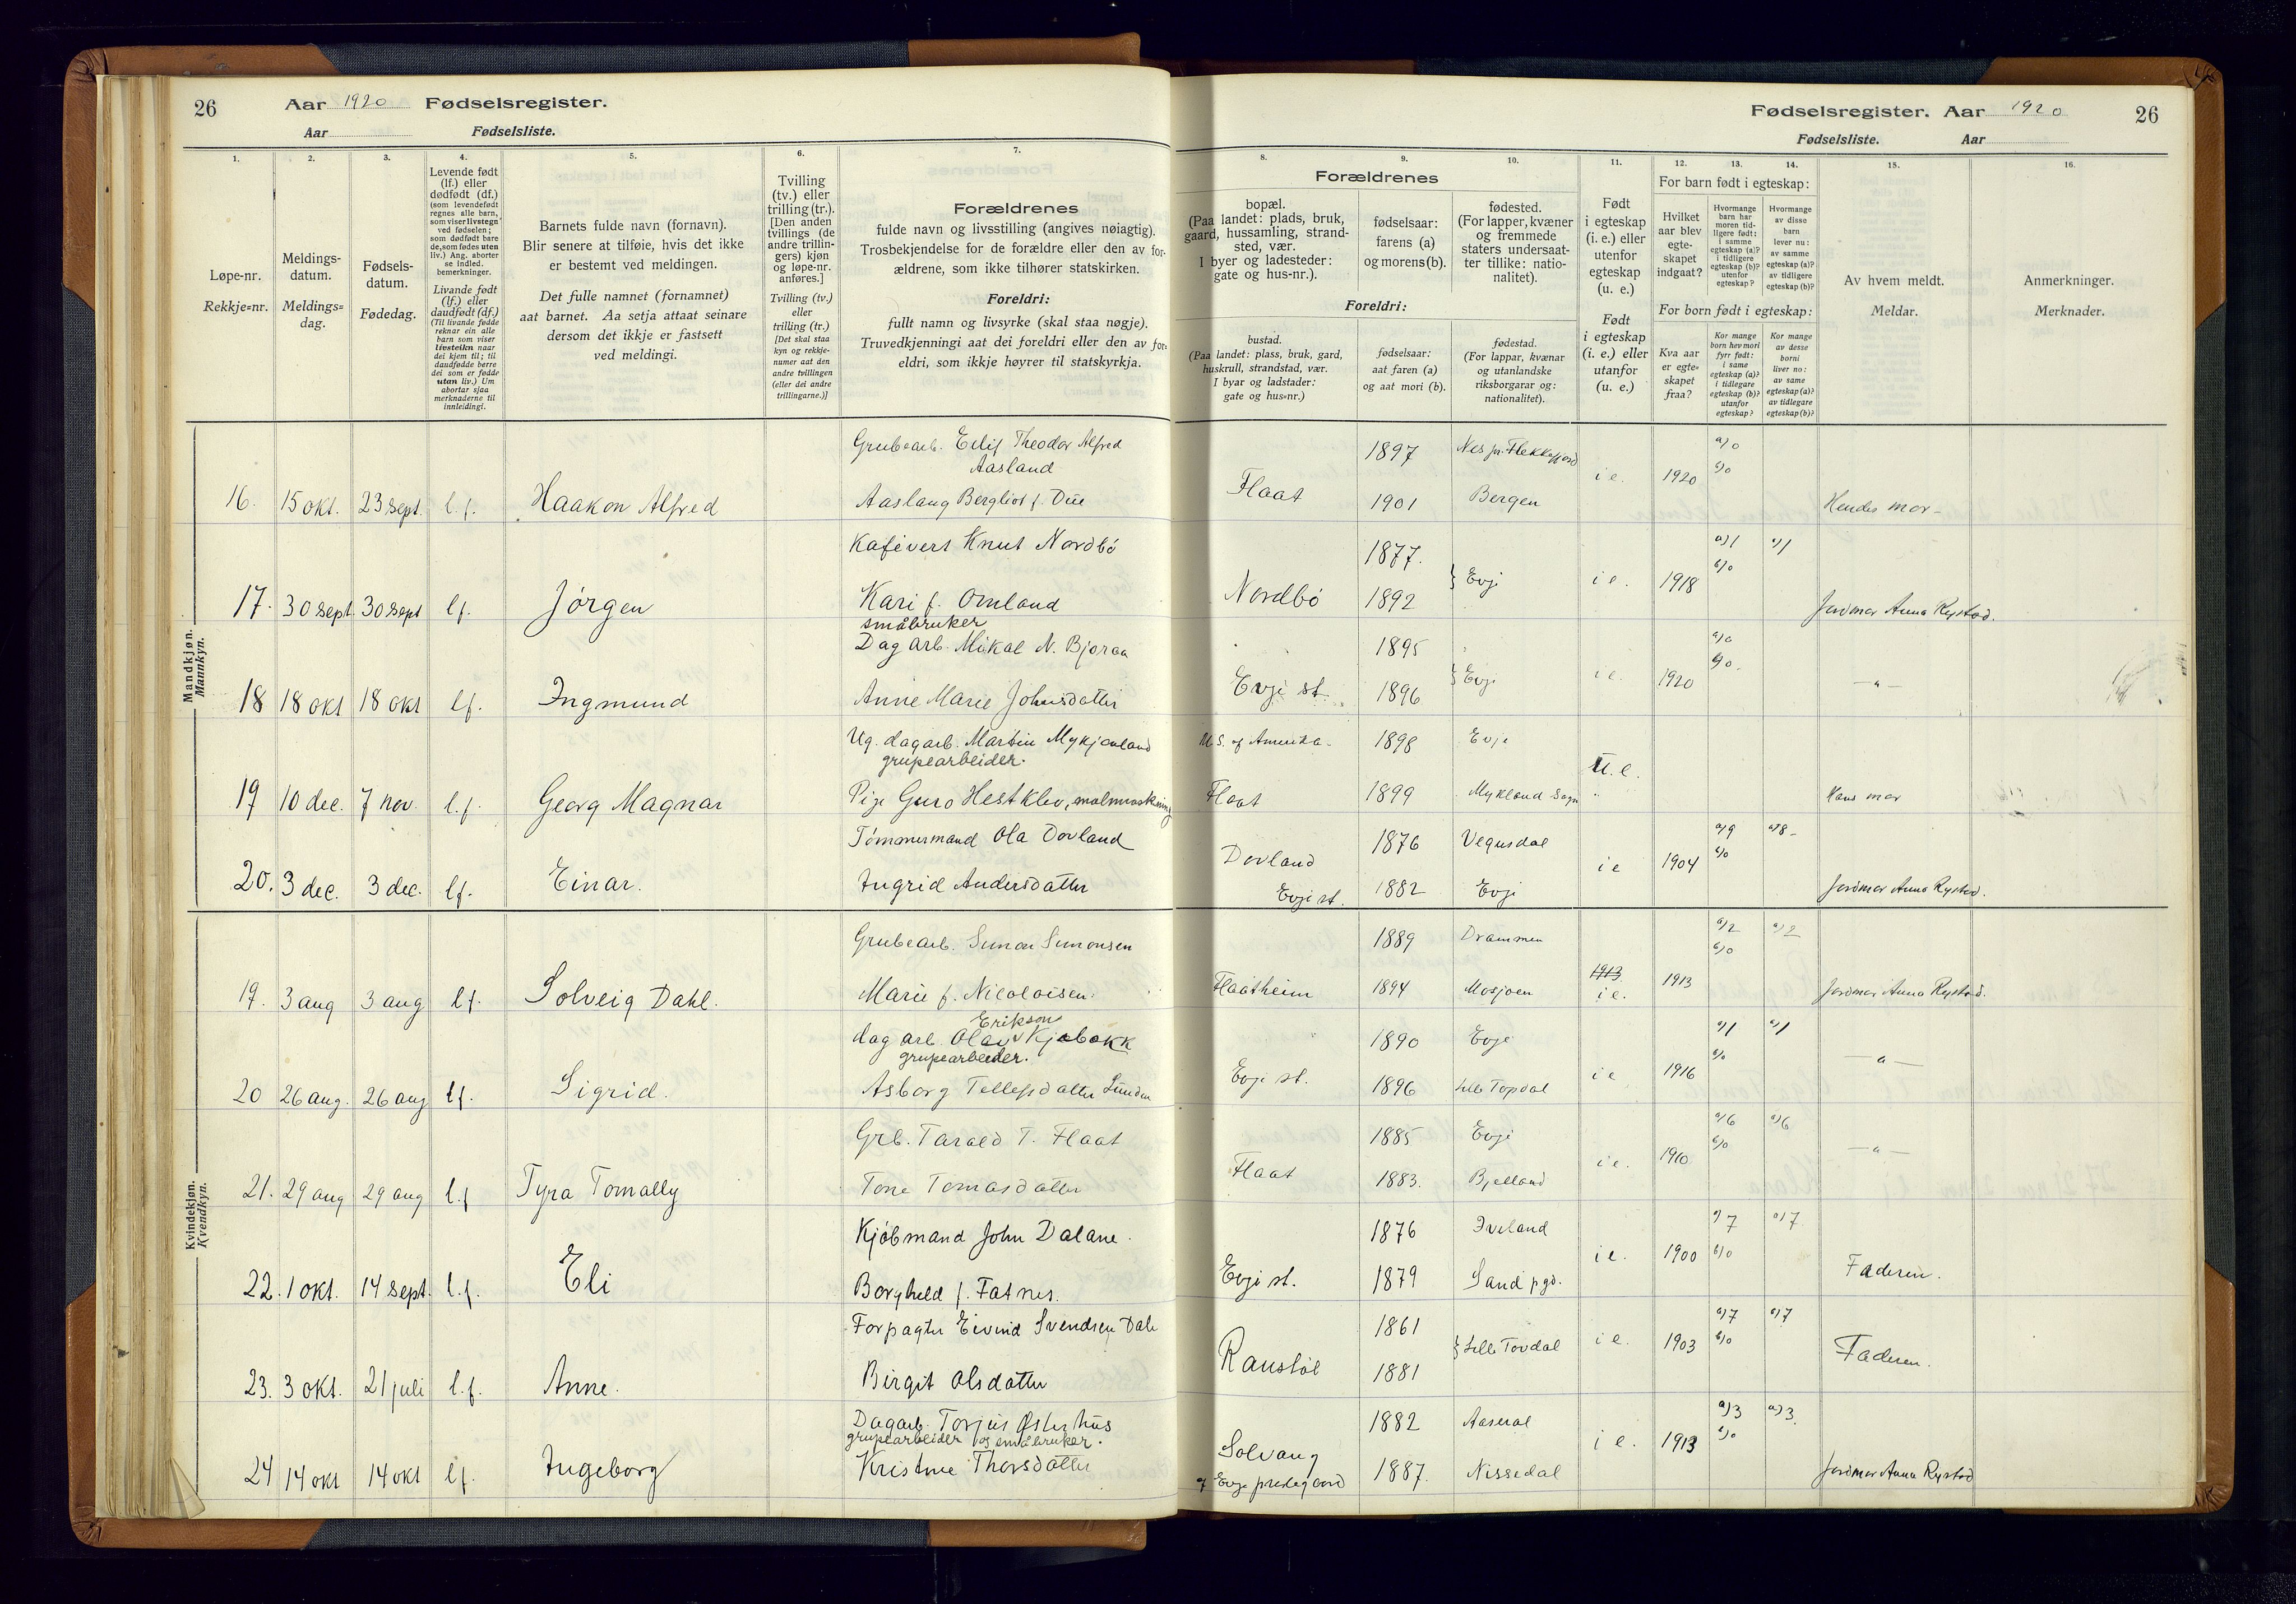 26 Aar 1920 Fødselsregister.
Aar Fødselsliste.
Fødselsregister. Aar 1920 26
Fødselsliste. Aar
1.
Løpe-nr.
Rekkje=nr.
2.
Meldings-
datum.
Meldings=
dag.
3.
Fødsels-
datum.
Fødedag.
4.
Levende født
(lf.) eller
dødfødt (df.)
(som levendefødt
regnes alle barn,
som viser livstegn
ved fødselen;
som dødfødt bare
de, som fødes uten
liv.) Ang. aborter
se indled.
bemerkninger.
Livande født
(lf.) eller
daudfødt (df.)
(Til livande fødde
reknar ein alle
barn som viser
livsteikn naar
dei kjem til; til
daudfødde berre
dei som er fødde
utan liv.) Um
abortar sjaa
merknaderne til
innleidingi.
5.
Barnets fulde navn (fornavn).
Blir senere at tilføie, hvis det ikke
er bestemt ved meldingen.
Det fulle namnet (fornamnet)
aat barnet. Aa setja attaat seinare
dersom det ikkje er fastsett
ved meldingi.
6.
Tvilling
(tv.) eller
trilling (tr.).
[Den anden
tvillings (de
andre trillin-
gers) kjøn
og løpe-nr.
anføres.]
Tvilling (tv.)
eller
trilling (tr.)
[Det skal staa
kyn og rekkje-
numer aat den
andre tvillingen
(eller dei andre
trillingarne.)]
7.
Forældrenes
fulde navn og livsstilling (angives nøiagtig).
Trosbekjendelse for de forældre eller den av for-
ældrene, som ikke tilhører statskirken.
Foreldri:
fullt namn og livsyrke (skal staa nøgje).
Truvedkjenningi aat dei foreldri eller den av for-
eldri, som ikkje høyrer til statskyrkja.
Forældrenes
8.
bopæl.
(Paa landet: plads, bruk,
gaard, hussamling, strand-
sted, vær.
I byer og ladesteder:
gate og hus-nr.).
9.
fødselsaar:
farens (a)
og morens (b).
10.
fødested.
(For lapper, kvæner
og fremmede
staters undersaat-
ter tillike: natio-
nalitet).
Foreldri:
bustad.
(Paa landet: plass, bruk, gard,
huskrull, strandstad, vær.
I byar og ladstader:
gate og hus=nr.)
fødselsaar:
aat faren (a)
og aat mori (b).
fødestad.
(For lappar, kvænar
og utanlandske
riksborgarar og:
nationalitet).
11.
Født
i egteskap
(i. e.) eller
utenfor
egteskap
(u. e.)
Født
i egteskap
(i. e.) eller
utanfor
(u. e.)
12. 13. 14.
For barn født i egteskap:
Hvilket
aar blev
egte-
skapet
indgaat?
Hvormange
barn har
moren tid-
ligere født:
i samme
egteskap (a)?
i tidligere
egteskap (b)?
utenfor
egteskap?
Hvormange
av disse
barn
lever nu:
av samme
egteskap (a)?
av tidligere
egteskap (b)?
For born født i egteskap:
Kva aar
er egte=
skapet
fraa?
Kor mange
born hev mori
fyrr født:
i same
egteskap (a)?
i tidlegare
egteskap (b)?
utanfor
egteskap?
Kor mange
av desse
borni
liver no:
av same
egteskap (a)?
av tidlegare
egteskap (b)?
15.
Av hvem meldt.
Meldar.
16.
Anmerkninger.
Merknader.
Mandkjøn.
Mannkyn.
Grubearb. Eilif Theodor Alfred
Aasland
1897 Nes pr. Flekkefjord
a) 0
b) 0
16. 15 okt. 23 sept. l.f. Haakon Alfred Aaslaug Bergliot f. Due Flaat 1901 Bergen i e. 1920 Hendes mor
Kafévert Knut Nordbö 1877.
a) 1 a) 1
b) 0
17. 30 sept. 30 sept lf. Jörgen Kari f. Omland Nordbö 1892 } Evje i e. 1918 Jordmor Anna Rystad.
småbruker
Dagarb. Mikal N. Bjoraa 1895
a) 0
b) 0.
18 18 okt 18 okt lf. Ingmund Anne Marie Johnsdatter Evje st 1896 } Evje i e. 1920 — " —
Ug. dagarb. Martin Mykjaaland U.S. of Amerika 1898 Evje
grupearbeider. U. e.
19 10 dec. 7 nov. l.f. Georg Magnar Pige Guro Hestklev, Flaat 1899 Mykland Sogn Hans mor
Tömmermand Ola Dovland 1876 Vegusdal
a) 9 a) 8
b) 0
Dovland i e 1904
20. 3 dec. 3 dec. lf. Einar. Ingrid Andersdatter Evje st. 1882 Evje Jordmor Anna Rystad.
Kvindekjøn.
Kvendkyn.
Grubearb. Simon Simonsen 1889 Drammen
a) 2 a) 2
b) 0
1913
19. 3 aug 3 aug lf. Solveig Dahl. Marie f. Nicolaisen. Flaatheim 1894 Mosjøen i e. 1913 Jordmor Anna Rystad.
Erikson
dagarb. Olav Kjebekk 1890 Evje
grupearbeider.
a) 1 a) 1
b) 0
20 26 aug. 26 aug lf. Sigrid. Asborg Tellefsdatter Evje st. 1896 Lille Topdal i e 1916 — " —
Grb. Tarald T. Flaat 1885 Evje
a) 6 a) 6
b) 0
21. 29 aug 29 aug l.f Tyra Tomally Tone Tomasdatter Flaat 1883. Bjelland i e. 1910 — " —
Kjöbmand John Dalane. 1876 Iveland
a) 7 a) 7
b) 0
22. 1 okt. 14 sept. l.f. Eli Borghild f. Fatnes. Evje st. 1879 Sand pgd. i e. 1900 Faderen.
Forpagter Eivind Svendsen Dale 1861
a) 7 a) 7
b) 0
23. 3 okt. 21 juli l.f. Anne. Birgit Olsdatter 1881 } Lille Tovdal i e. 1903 Faderen.
Dagarb. Torjus Østerhus 1882 Aaseral
grupearbeider og småbruker.
a) 3 a) 3.
b) 0
24 14 okt 14 okt lf. Ingeborg Kristine Thorsdatter Solvang 1887. Nissedal i e. 1913 Jordmor Anna Rystad
af Evje prestegaard